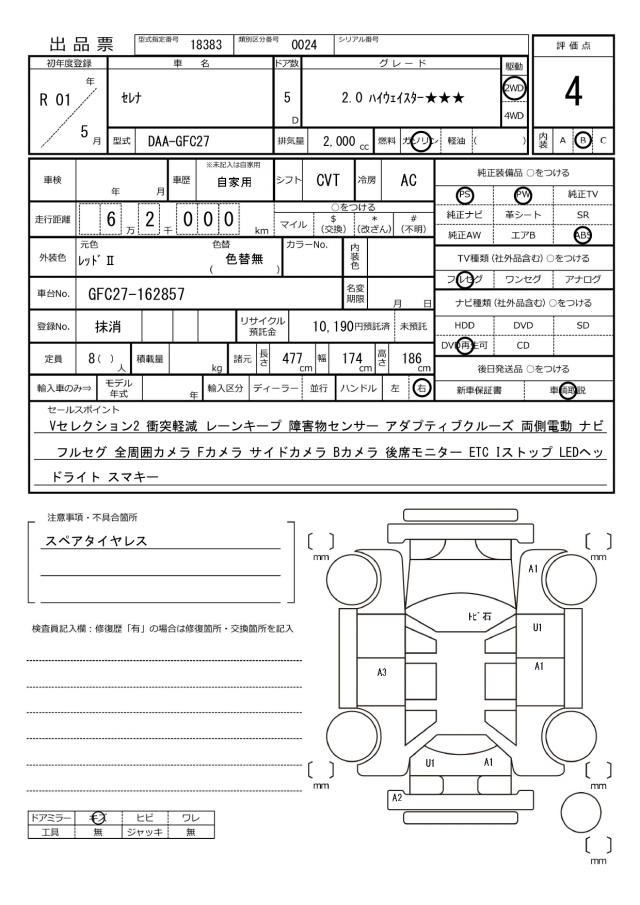 出品票 型式指定番号 18383 類別区分番号 0024 シリアル番号
評価点
初年度登録 車名 ドア数 グレード 駆動
R 01 年 セレナ 5 D 2.0 ハイウェイスター★★★ 2WD 4
5 月 4WD
型式 DAA-GFC27 排気量 2,000 cc 燃料 ガソリン 軽油 ( ) 内装 A B C
車検 年 月 車歴 ※未記入は自家用 自家用 シフト CVT 冷房 AC
純正装備品 ○をつける
PS PW 純正TV
走行距離 6 万 2 千 0 0 0 km ○をつける マイル $ (交換) * (改ざん) # (不明)
純正ナビ 革シート SR
純正AW エアB ABS
外装色 元色 レッドⅡ 色替 ( 色替無 ) カラーNo. 内装色
TV種類 (社外品含む) ○をつける
フルセグ ワンセグ アナログ
車台No. GFC27-162857 名変期限 月 日
ナビ種類 (社外品含む) ○をつける
登録No. 抹消 リサイクル預託金 10,190円預託済 未預託
HDD DVD SD
DVD再生可 CD
定員 8( ) 人 積載量 kg 諸元 長さ 477 cm 幅 174 cm 高さ 186 cm
後日発送品 ○をつける
輸入車のみ⇒ モデル年式 年 輸入区分 ディーラー 並行 ハンドル 左 右
新車保証書 車輌取説
セールスポイント
Vセレクション2 衝突軽減 レーンキープ 障害物センサー アダプティブクルーズ 両側電動 ナビ
フルセグ 全周囲カメラ Fカメラ サイドカメラ Bカメラ 後席モニター ETC Iストップ LEDヘッ
ドライト スマキー
注意事項・不具合箇所
スペアタイヤレス
検査員記入欄：修復歴「有」の場合は修復箇所・交換箇所を記入
mm mm
A1
トビ石
U1
A3 A1
U1 A1
mm mm
A2
mm
ドアミラー キズ ヒビ ワレ
工具 無 ジャッキ 無